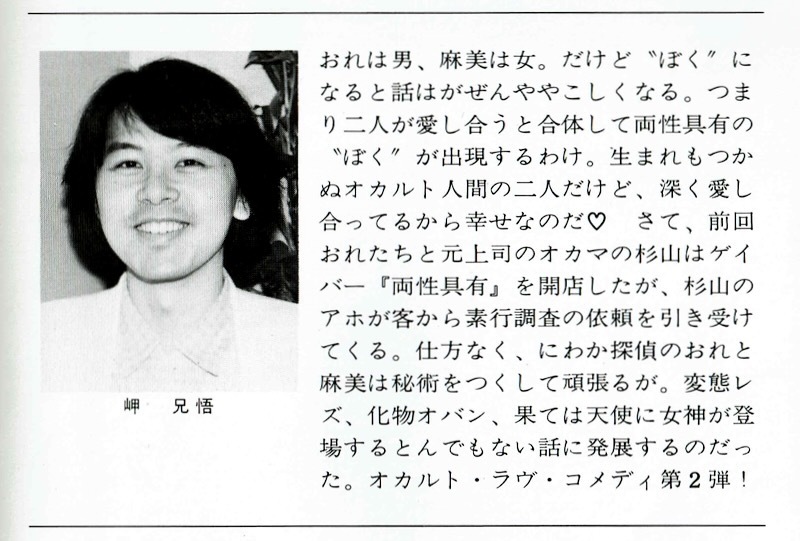 おれは男、麻美は女。だけど〝ぼく〟に
なると話はがぜんややこしくなる。つま
り二人が愛し合うと合体して両性具有の
〝ぼく〟が出現するわけ。生まれもつか
ぬオカルト人間の二人だけど、深く愛し
合ってるから幸せなのだ♡　さて、前回
おれたちと元上司のオカマの杉山はゲイ
バー『両性具有』を開店したが、杉山の
アホが客から素行調査の依頼を引き受け
てくる。仕方なく、にわか探偵のおれと
麻美は秘術をつくして頑張るが。変態レ
ズ、化物オバン、果ては天使に女神が登
場するとんでもない話に発展するのだっ
た。オカルト・ラヴ・コメディ第2弾！
岬　兄悟